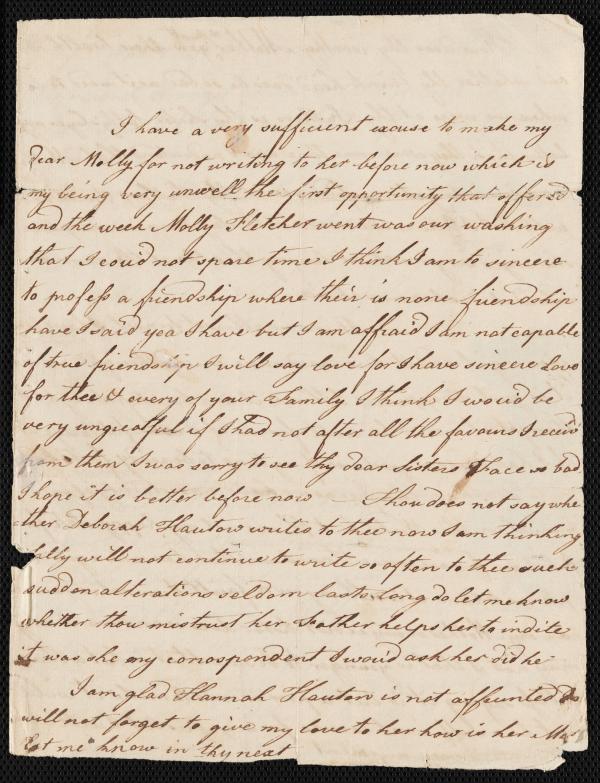 I have a very sufficient excuse to make my
Dear Molly for not writing to her before now which is
my being very unwell the first opportunity that offered
and the week Molly Fletcher went was our washing
that I coud not spare time I think I am to sincere
to profess a friendship where their is none friendship
have I said yea I have but I am affraid I am not capable
of true friendship I will say love for I have sincere Love
for thee & every of your Family I think I woud be
very ungreatful if I had not after all the favours I receiv'd
from them I was sorry to see thy dear Sisters Face so bad
I hope it is better before now — Thou does not say whe
ther Deborah writes to thee now I am thinking
Sally will not continue to write so often to thee such
sudden alterations seldom lasts long do let me know
whether thou mistrust her Father helps her to indite
it was she my corrospondent I woud ask her did he
I am glad Hannah is not affrunted
will not forget to give my love to her how is her
Let me know in thy next